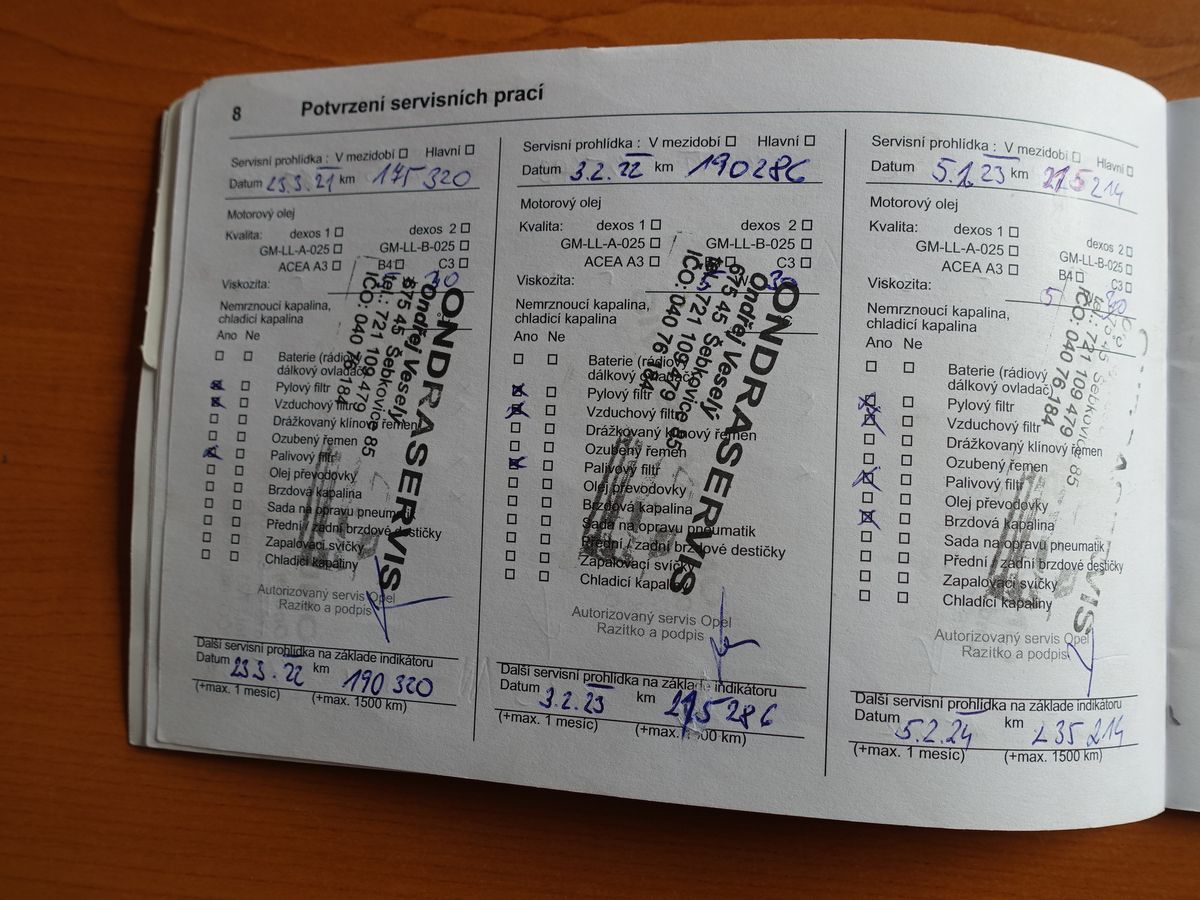 8 Potvrzení servisních prací
Servisní prohlídka : V mezidobí Hlavní
Datum 23.3.21 km 175 320
Motorový olej
Kvalita: dexos 1 dexos 2
GM-LL-A-025 GM-LL-B-025
ACEA A3 B4 C3
Viskozita: 30
Nemrznoucí kapalina,
chladicí kapalina
Ano Ne
Baterie (rádiový
dálkový ovladač)
Pylový filtr
Vzduchový filtr
Drážkovaný klínový řemen
Ozubený řemen
Palivový filtr
Olej převodovky
Brzdová kapalina
Sada na opravu pneumatik
Přední / zadní brzdové destičky
Zapalovací svíčky
Chladicí kapaliny
ONDRASERVIS
Ondřej Veselý
675 45 Šebkovice 85
tel.: 721 109 479
IČO: 040 76 184
Autorizovaný servis Opel
Razítko a podpis
Další servisní prohlídka na základě indikátoru
Datum 23.3.22 km 190 320
(+max. 1 měsíc) (+max. 1500 km)
Servisní prohlídka : V mezidobí Hlavní
Datum 3.2.22 km 190286
Motorový olej
Kvalita: dexos 1 dexos 2
GM-LL-A-025 GM-LL-B-025
ACEA A3 B4 C3
Viskozita: 5 W 30
Nemrznoucí kapalina,
chladicí kapalina
Ano Ne
Baterie (rádiový
dálkový ovladač)
Pylový filtr
Vzduchový filtr
Drážkovaný klínový řemen
Ozubený řemen
Palivový filtr
Olej převodovky
Brzdová kapalina
Sada na opravu pneumatik
Přední / zadní brzdové destičky
Zapalovací svíčky
Chladicí kapaliny
ONDRASERVIS
Ondřej Veselý
675 45 Šebkovice 85
tel.: 721 109 479
IČO: 040 76 184
Autorizovaný servis Opel
Razítko a podpis
Další servisní prohlídka na základě indikátoru
Datum 3.2.23 km 215286
(+max. 1 měsíc) (+max. 1500 km)
Servisní prohlídka : V mezidobí Hlavní
Datum km 215 214
Motorový olej
Kvalita: dexos 1 dexos 2
GM-LL-A-025 GM-LL-B-025
ACEA A3 B4 C3
Viskozita: 5 30
Nemrznoucí kapalina,
chladicí kapalina
Ano Ne
Baterie (rádiový
dálkový ovladač)
Pylový filtr
Vzduchový filtr
Drážkovaný klínový řemen
Ozubený řemen
Palivový filtr
Olej převodovky
Brzdová kapalina
Sada na opravu pneumatik
Přední / zadní brzdové destičky
Zapalovací svíčky
Chladicí kapaliny
675 45 Šebkovice 85
tel.: 721 109 479
IČO: 040 76 184
Autorizovaný servis Opel
Razítko a podpis
Další servisní prohlídka na základě indikátoru
Datum 5.2.24 km 235 214
(+max. 1 měsíc) (+max. 1500 km)